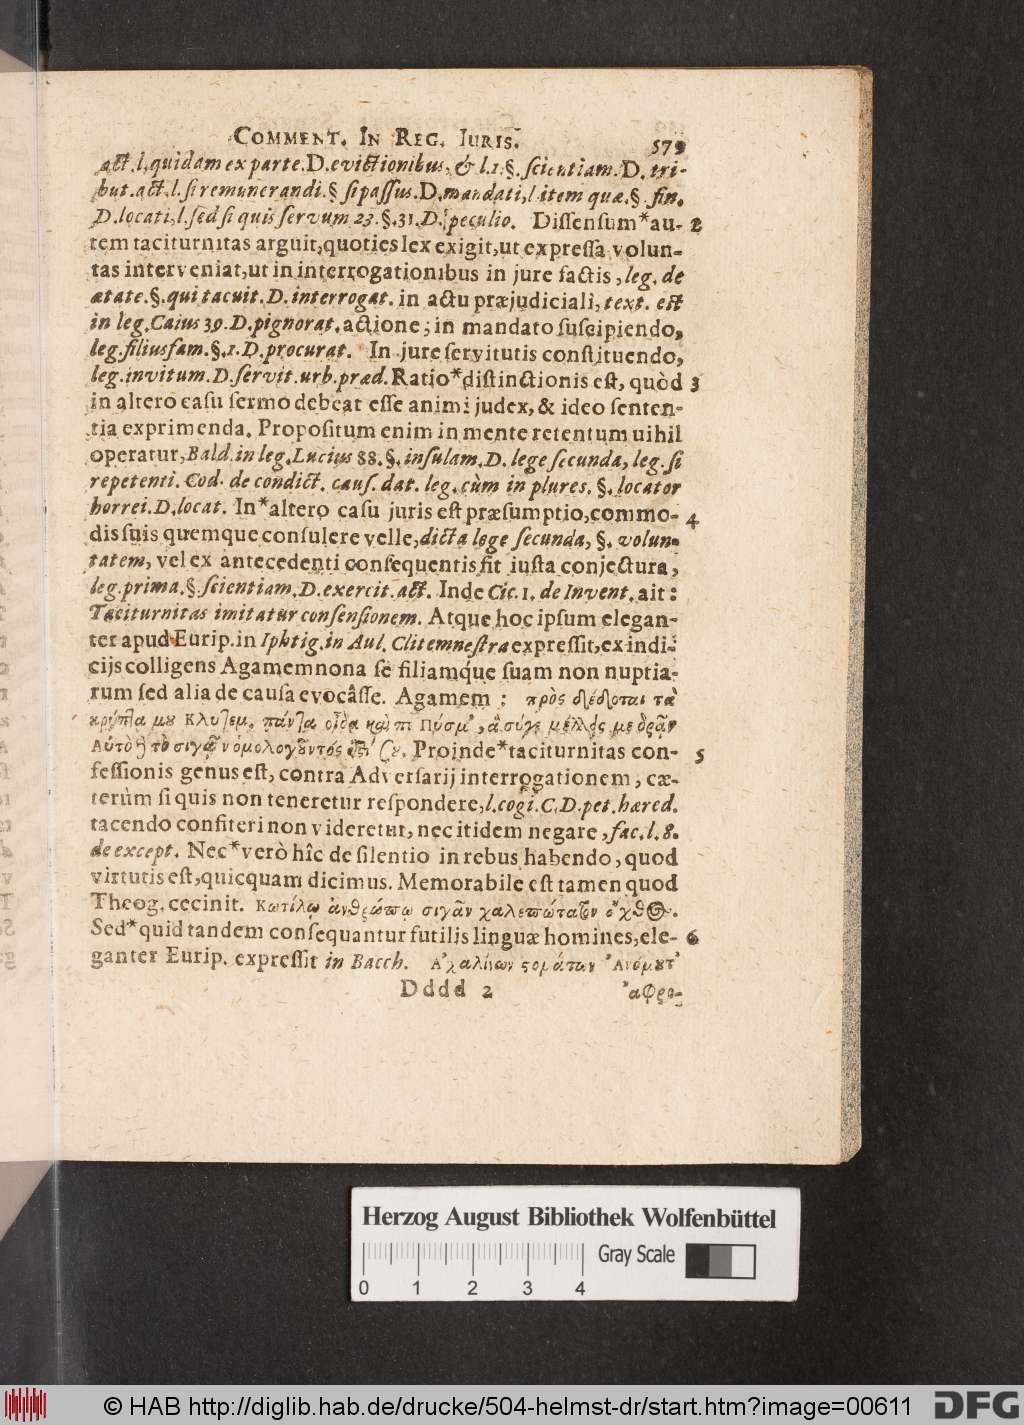 COMMENT. IN REG. IURIS.
579
act. l. quidam ex parte. D. evictionibus, & l. 1. §. scientiam. D. tri-
but. act. l. si remunerandi. § si passus. D. mandati, l item quæ. §. fin.
D. locati, l. sed si quis servum 23. §. 31. D. peculio. Dissensum*au- 2
tem taciturnitas arguit, quoties lex exigit, ut expressa volun-
tas interveniat, ut in interrogationibus in jure factis, leg. de
ætate. §. qui tacuit. D. interrogat. in actu præjudiciali, text. est
in leg. Caius 39. D. pignorat. actione; in mandato suscipiendo,
leg. filiusfam. §. 1. D. procurat. In jure servitutis constituendo,
leg. invitum. D. servit. urb. præd. Ratio*distinctionis est, quòd 3
in altero casu sermo debeat esse animi judex, & ideo senten-
tia exprimenda. Propositum enim in mente retentum uihil
operatur, Bald. in leg. Lucius 88. §. insulam. D. lege secunda, leg. si
repetenti. Cod. de condict. caus. dat. leg. cùm in plures. §. locator
horrei. D. locat. In*altero casu juris est præsumptio, commo- 4
dis suis quemque consulere velle, dicta lege secunda, §. volun-
tatem, vel ex antecedenti consequentis fit iusta conjectura,
leg. prima. §. scientiam. D. exercit. act. Inde Cic. 1. de Invent. ait:
Taciturnitas imitatur consensionem. Atque hoc ipsum elegan-
ter apud Eurip. in Iphtig. in Aul. Clitemnestra expressit, ex indi-
cijs colligens Agamemnona se filiamq́ue suam non nuptia-
rum sed alia de causa evocâsse. Agamem: πρὸς
Κλυτεμ. πάντα οἶδα
Αὐτὸ τὸ σιγᾶν ὁμολογοῦντός Proinde*taciturnitas con- 5
fessionis genus est, contra Adversarij interrogationem, cæ-
terùm si quis non teneretur respondere, l. cogi. C. D. pet. hæred.
tacendo confiteri non videretur, nec itidem negare, fac. l. 8.
de except. Nec*verò hîc de silentio in rebus habendo, quod
virtutis est, quicquam dicimus. Memorabile est tamen quod
Theog. cecinit. Κωτίλῳ ἀνθρώπῳ σιγᾶν χαλεπώτατον ὄχθος.
Sed*quid tandem consequantur futilis linguæ homines, ele- 6
ganter Eurip. expressit in Bacch. Ἀχαλίνων στομάτων Ἀνόμουτ᾽
Dddd 2 ἀφρο-
Herzog August Bibliothek Wolfenbüttel
Gray Scale
0 1 2 3 4
© HAB http://diglib.hab.de/drucke/504-helmst-dr/start.htm?image=00611 DFG